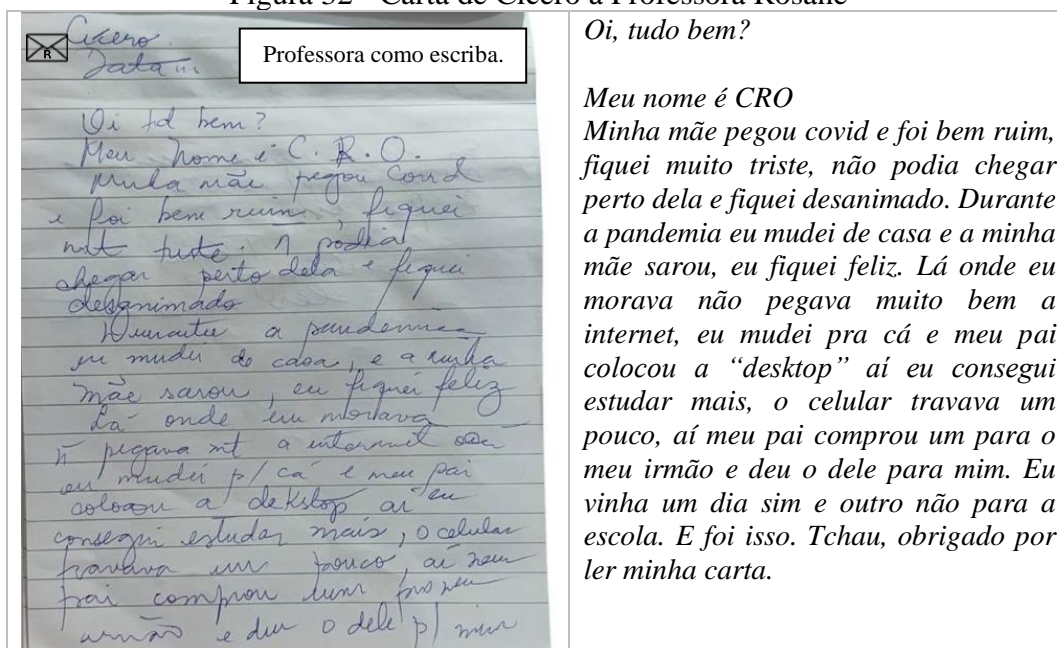 Figura 32 - Carta de Cícero à Professora Rosane
Cícero
R
Professora como escriba.
Oi td bem?
Meu nome é C. R. O.
Minha mãe pegou Covid
e foi bem ruim, fiquei
mt triste. ñ podia
chegar perto dela e fiquei
desanimado
Durante a pandemia
eu mudei de casa, e a minha
mãe sarou, eu fiquei feliz
Lá onde eu morava
ñ pegava mt a internet
eu mudei p/ cá e meu pai
colocou a dekstop aí eu
consegui estudar mais, o celular
travava um pouco, aí meu
pai comprou um pro meu
irmão e deu o dele p/ mim
Oi, tudo bem?
Meu nome é CRO
Minha mãe pegou covid e foi bem ruim,
fiquei muito triste, não podia chegar
perto dela e fiquei desanimado. Durante
a pandemia eu mudei de casa e a minha
mãe sarou, eu fiquei feliz. Lá onde eu
morava não pegava muito bem a
internet, eu mudei pra cá e meu pai
colocou a “desktop” aí eu consegui
estudar mais, o celular travava um
pouco, aí meu pai comprou um para o
meu irmão e deu o dele para mim. Eu
vinha um dia sim e outro não para a
escola. E foi isso. Tchau, obrigado por
ler minha carta.